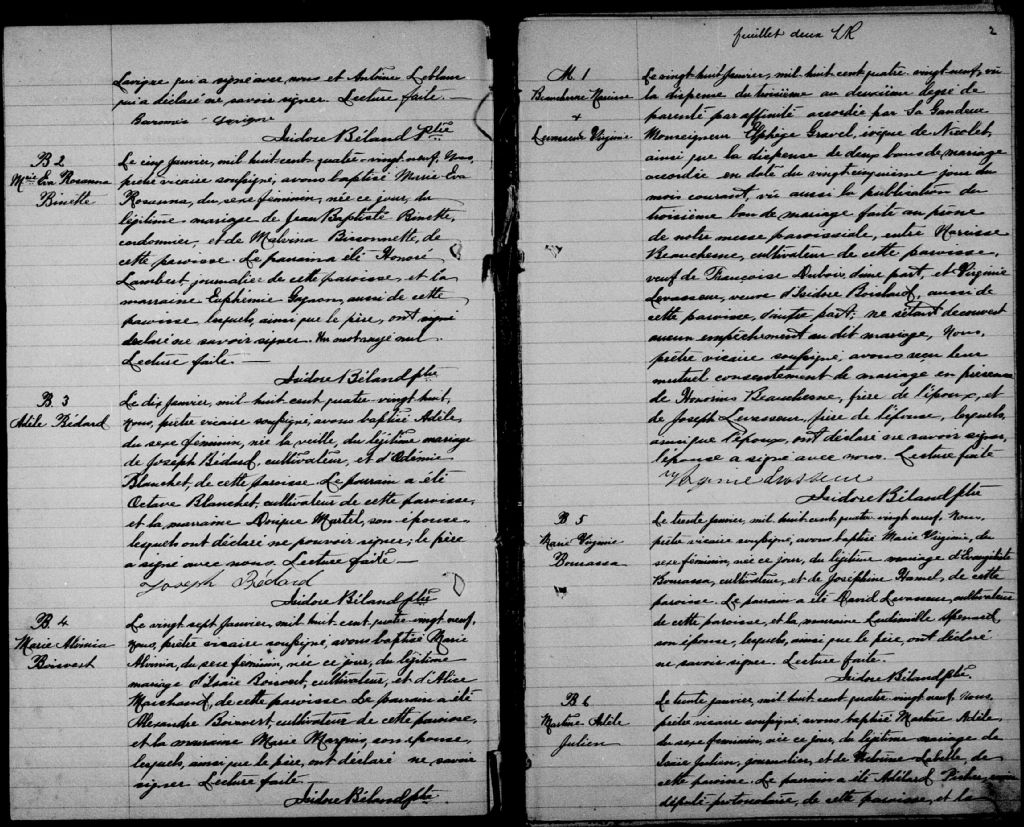 Lavigne qui a signé avec nous et Antoine Leblanc
qui a déclaré ne savoir signer. Lecture faite.
Isidore Béland ptre
B 2
Marie Eva Rosanna
Binette
Le cinq Janvier, mil huit cent quatre-vingt neuf, Nous,
prêtre vicaire soussigné, avons baptisé Marie Eva
Rosanna, du sexe féminin, née ce jour, du
légitime mariage de Jean Baptiste Binette,
cordonnier, et de Malvina Bissonnette, de
cette paroisse. Le parrain a été Honoré
Lambert, journalier de cette paroisse, et la
marraine Euphémie Gagnon, aussi de cette
paroisse lesquels, ainsi que le père, ont
déclaré ne savoir signer. Un mot rayé nul.
Lecture faite.
Isidore Béland ptre
B. 3
Adèle Bédard
Le dix Janvier, mil-huit cent quatre-vingt huit,
nous, prêtre vicaire soussigné, avons baptisé Adèle,
du sexe féminin, née la veille, du légitime mariage
de Joseph Bédard, cultivateur, et d'
Blanchet, de cette paroisse. Le parrain a été
Octave Blanchet, cultivateur de cette paroisse,
et la marraine Martel, son épouse,
lesquels ont déclaré ne pouvoir signer; le père
a signé avec nous. Lecture faite
Joseph Bédard
Isidore Béland ptre
B 4
Marie Alvinia
Boisvert
Le vingt sept Janvier, mil huit cent, quatre vingt neuf,
nous, prêtre vicaire soussigné, avons baptisé Marie
Alvinia, du sexe féminin, née ce jour, du légitime
mariage d'Isaïe Boisvert, cultivateur, et d'Alice
Marchand, de cette paroisse. Le parrain a été
Alexandre Boisvert, cultivateur de cette paroisse,
et la marraine Marie Marquis, son épouse,
lesquels, ainsi que le père, ont déclaré ne savoir
signer Lecture faite
Isidore Béland ptre
feuillet deux
2
M. 1
Beauchesne Narcisse
+
Levasseur Virginie
Le vingt huit Janvier, mil huit cent quatre-vingt neuf, vû
la dispense du troisième au deuxième degré de
parenté par affinité accordée par Sa Grandeur
Monseigneur Elphège Gravel, évêque de Nicolet,
ainsi que la dispense de deux bans de mariage
accordée en date du vingt cinquième jour du
mois courant, vû aussi la publication du
troisième ban de mariage faite au prône
de notre messe paroissiale, entre Narcisse
Beauchesne, cultivateur de cette paroisse,
veuf de Françoise Dubois, d'une part, et Virginie
Levasseur, veuve d'Isidore Boisclair, aussi de
cette paroisse, d'autre part; ne s'étant découvert
aucun empêchement au dit mariage, Nous,
prêtre vicaire soussigné, avons reçu leur
mutuel consentement de mariage en présence
de Honorius Beauchesne, frère de l'époux, et
de Joseph Levasseur, père de l'épouse, lesquels,
ainsi que l'époux, ont déclaré ne savoir signer,
l'épouse a signé avec nous. Lecture faite
Isidore Béland ptre
B 5
Marie Virginie
Bourassa
Le trente janvier, mil huit cent, quatre vingt neuf, Nous,
prêtre vicaire soussigné, avons baptisé Marie Virginie, du
sexe féminin, née ce jour, du légitime mariage d'Evangéliste
Bourassa, cultivateur, et de Joséphine Hamel, de cette
paroisse. Le parrain a été David Levasseur, cultivateur
de cette paroisse, et la marraine
son épouse, lesquels, ainsi que le père, ont déclaré
ne savoir signer. Lecture faite.
Isidore Béland ptre.
B 6
Martine Adèle
Julien
Le trente janvier, mil huit cent quatre vingt neuf, Nous,
prêtre vicaire soussigné, avons baptisé Martine Adèle
du sexe féminin, née ce jour, du légitime mariage de
Julien, journalier, et de Labelle, de
cette paroisse. Le parrain a été Adélard
député protonotaire, de cette paroisse, et la